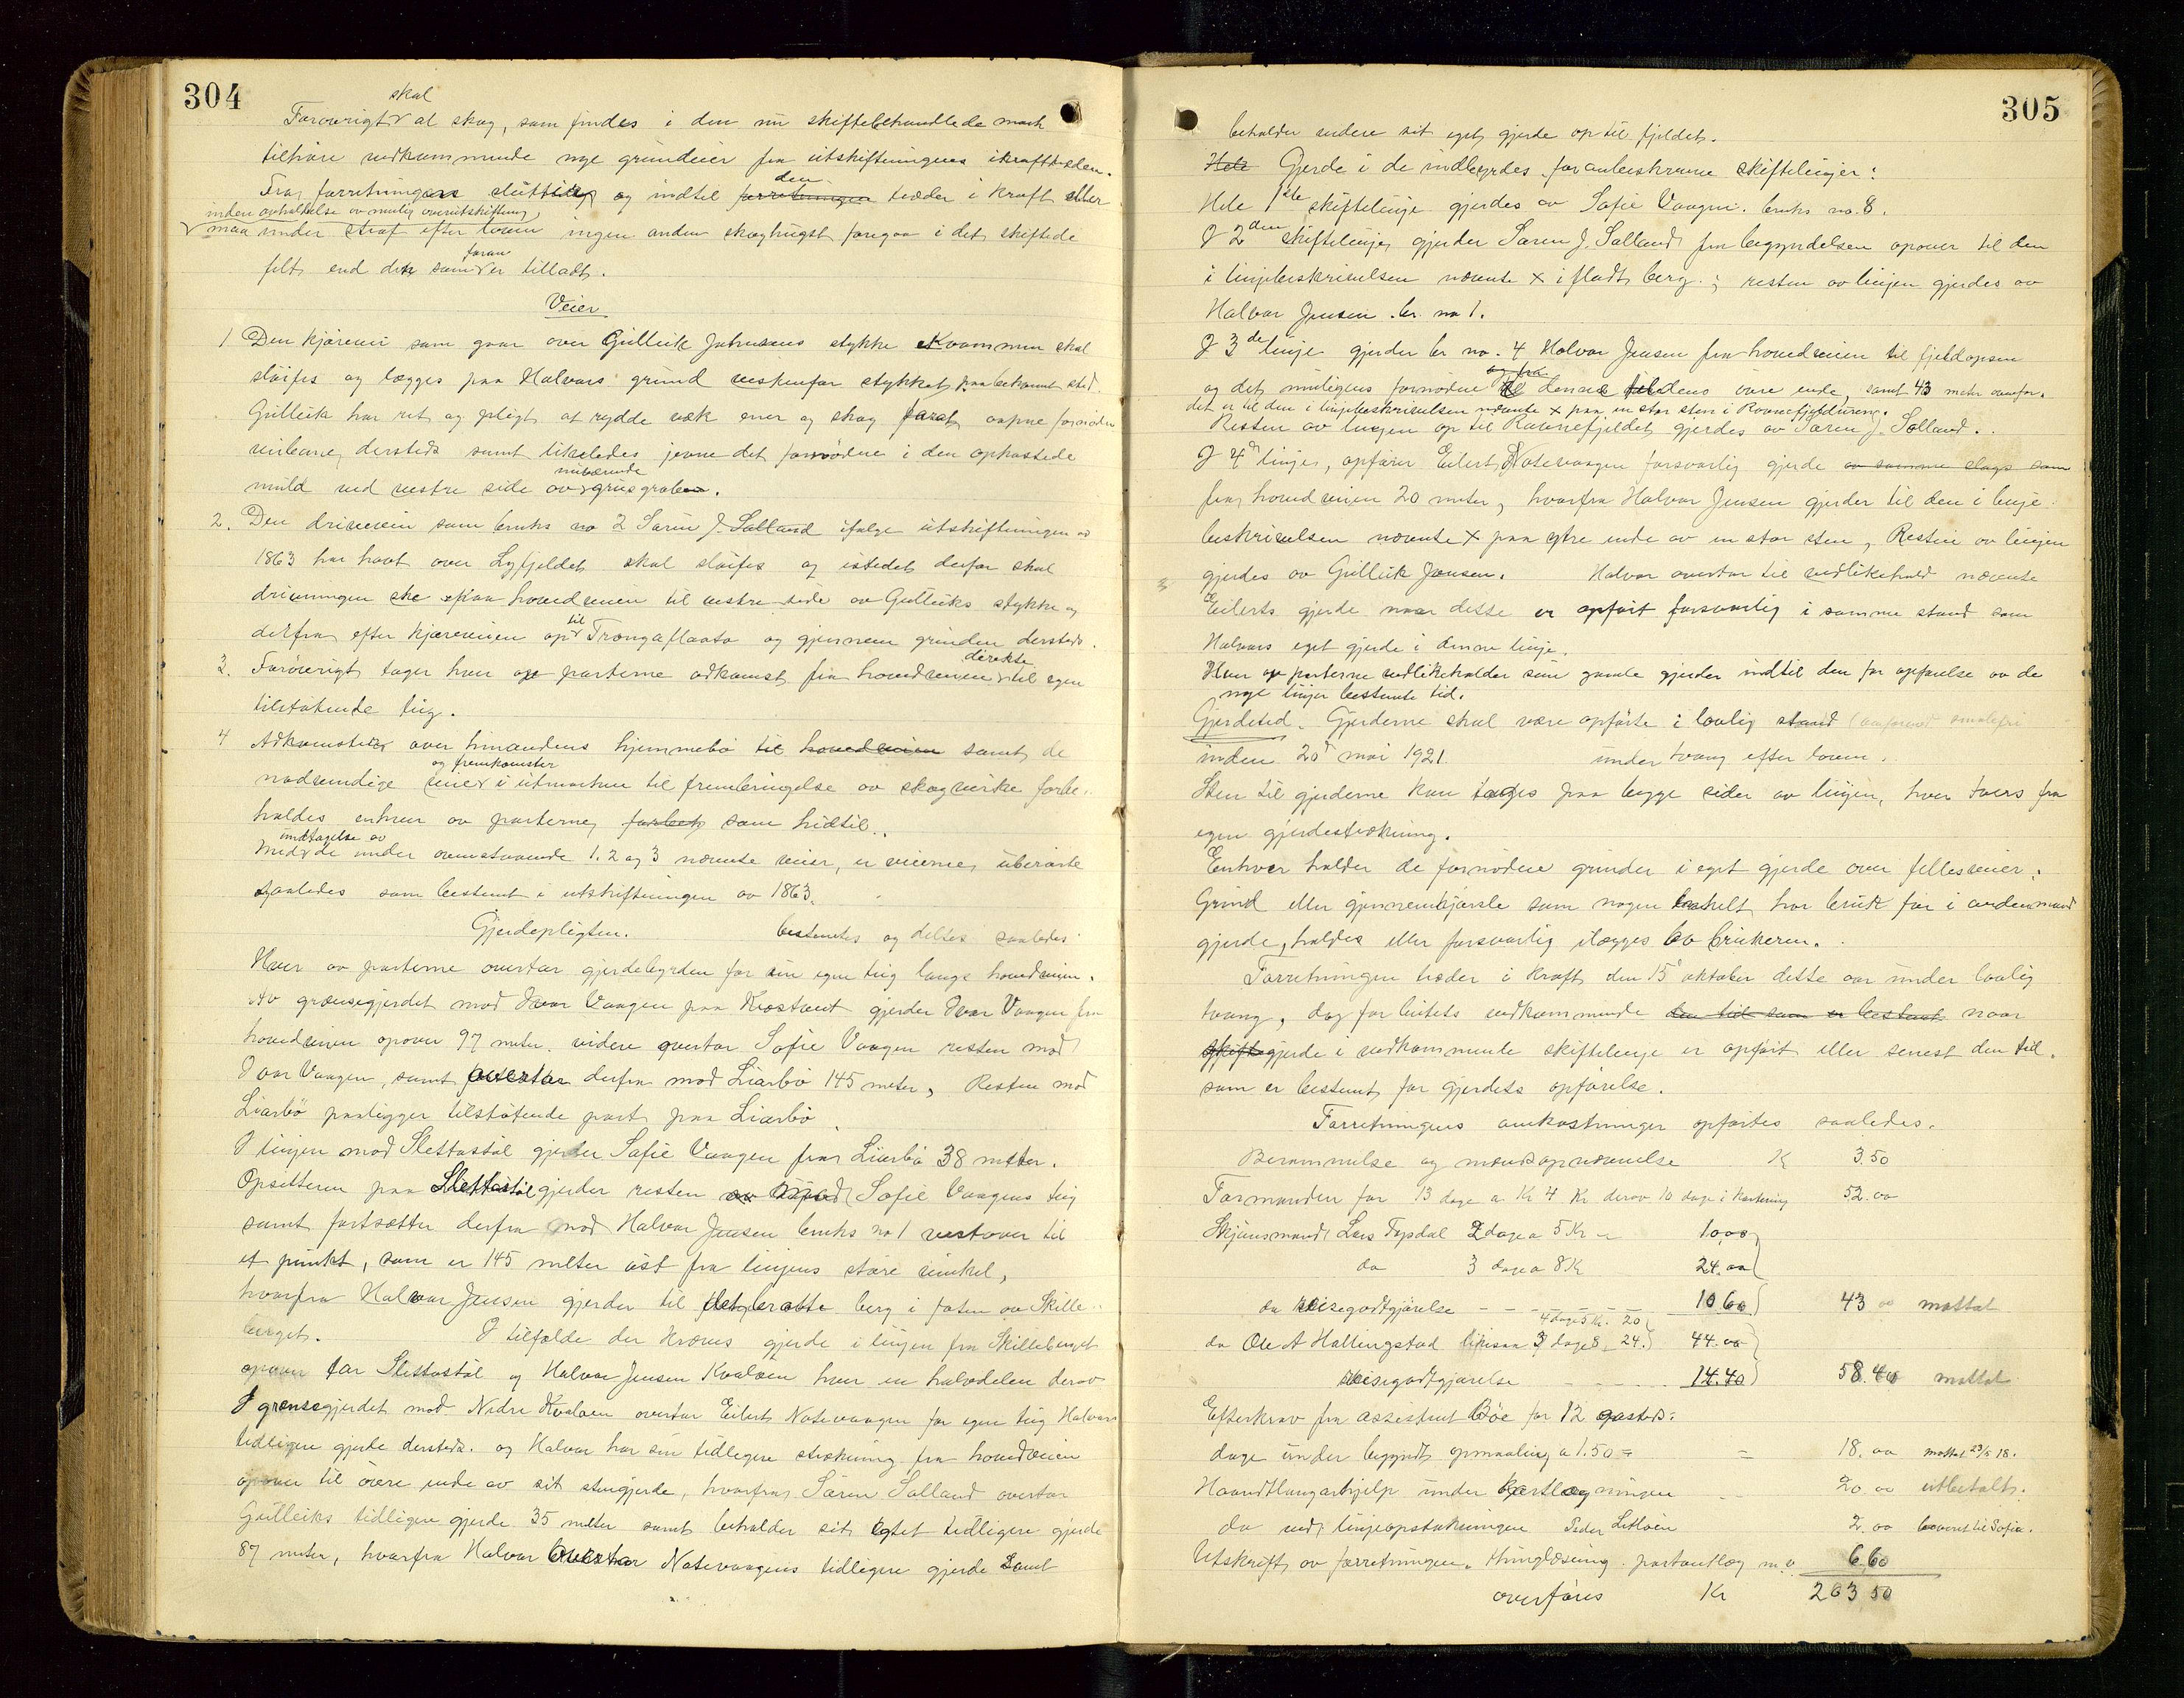 304
skal
Forøvrigt al skog, som findes i den nu skiftebehandlede mark
tilhøre vedkommende nye grundeier fra utskiftningens ikrafttræden.
den
Fra forretningens sluttning og indtil forretningen træder i kraft eller
inden avholdelse av mulig overutskiftning
maa under straf efter loven ingen anden skoghugst foregaa i det skiftede
foran
felt end den som er tilladt.
Veier
1 Den kjørevei som gaar over Gulleik Johnsens stykke Kvammen skal
sløifes og lægges paa Halvors grund vestenfor stykket, paa bekvemt sted.
Gulleik har ret og pligt at rydde væk ener og skog samt aapne fornøden
veibane dersteds samt likeledes jevne det fornødne i den ophøstede
nuværende
muld ved vestre side av grusgraben.
2. Den drivevei som bruks no 2 Søren J. Solland ifølge utskiftningen av
1863 har havt over Lyfjeldet skal sløifes og istedet derfor skal
drivningen ske paa hovedveien til vestre side av Gulleiks stykke og
til
derfra efter kjøreveien op Trongaflaata og gjennem grinden dersteds.
direkte
3. Forøvrigt tager hver av parterne adkomst fra hovedveien til egen
tilstøtende teig.
4 Adkomstvei over hinandens hjemmebø til hovedveien samt de
og fremkomster
nødvendige veie i utmarken til frembringelse av skogvirke forbe-
holdes enhver av parterne forbeh som hidtil.
undtagelse av
Med de under ovenstaaende 1. 2 og 3 nævnte veier, er veiene uberørte
saaledes som bestemt i utskiftningen av 1863.
Gjerdepligten. bestemtes og deltes saaledes
Hver av parterne overtar gjerdebyrden for sin egen teig langs hovedveien.
Av grænsegjerdet mod Ivar Vaagen paa Krostveit gjerder Ivar Vaagen fra
hovedveien opover 97 meter. videre overtar Sofie Vaagen resten mod
Ivar Vaagen, samt overtar derfra mod Liarbø 145 meter, Resten mod
Liarbø paaligger tilstøtende part paa Liarbø.
I linjen mod Slettastøl gjerder Sofie Vaagen fra Liarbø 38 meter.
Opsitteren paa Slettastøl gjerder resten av mod Sofie Vaagens teig
samt fortsætter derfra mod Halvor Jensen bruks no 1 vestover til
et punkt, som er 145 meter øst fra linjens store vinkel,
hvorfra Halvor Jensen gjerder til det bratte berg i foten av Skille-
berget. I tilfælde der kræves gjerde i linjen fra Skilleberget
opover tar Slettastøl og Halvor Jensen Kvaløen hver en halvdelen derav
I grensegjerdet mod Nedre Kvaløen overtar Eilert Notevaagen for egen teig Halvors
tidligere gjerde dersteds. og Halvor har sin tidligere strækning fra hovedveien
opover til øvre ende av sit stengjerde, hvorfra Søren Solland overtar
Gulleiks tidligere gjerde 35 meter samt beholder sit eget tidligere gjerde
87 meter, hvorfra Halvor overtar Notevaagens tidligere gjerde samt
305
beholder videre sit eget gjerde op til fjeldet.
Hele Gjerde i de indbyrdes foranbeskrevne skiftelinjer:
Hele 1ste skiftelinje gjerdes av Sofie Vaagen. bruks no. 8.
I 2den skiftelinje gjerder Søren J. Solland fra begyndelsen opover til den
i linjebeskrivelsen nævnte X i fladt berg.; resten av linjen gjerdes av
Halvor Jensen. br. no 1.
I 3de linje gjerder br no. 4 Halvor Jensen fra hovedveien til fjeldopsen
og fra
og det muligens fornødne til dennes øvre ende, samt 43 meter ovenfor.
det er til den i linjebeskrivelsen nævnte X paa en stor sten i Ravnefjeldurene.
Resten av linjen op til Ravnefjeldet gjerdes av Søren J. Solland.
I 4de linje, opfører Eilert Notevaagen forsvarlig gjerde av samme slags som
fra hovedveien 20 meter, hvorfra Halvor Jensen gjerder til den i linje-
beskrivelsen nævnte X paa ytre ende av en stor sten, Resten av linjen
gjerdes av Gulleik Jonsen. Halvor overtar til vedlikehold nævnte
Eilerts gjerde naar dette er opført forsvarlig i samme stand som
Halvors eget gjerde i denne linje.
Hver av parterne vedlikeholder sine gamle gjerder indtil den for opførelse av de
nye linjer bestemte tid.
Gjerdetid. Gjerderne skal være opførte i lovlig stand
inden 20d mai 1921. under tvang efter loven.
Sten til gjerderne kan tages paa begge sider av linjen, hver tvers fra
egen gjerdestrækning.
Enhver holder de fornødne grinder i eget gjerde over fellesveier.
Grind eller gjennemkjørsle som nogen enkelt har bruk for i anden mand
gjerde, holdes eller forsvarlig ilægges av brukeren.
Forretningen træder i kraft den 15d oktober dette aar under lovlig
tvang, dog for beitets vedkommende den tid som er bestemt naar
skifte gjerde i vedkommende skiftelinje er opført eller senest den tid
som er bestemt for gjerdets opførelse.
Forretningens omkostninger opførtes saaledes.
Berammelse og mændsopnævnelse K 3.50
Formanden for 13 dage a Kr 4 Kr derav 10 dage i kartering 52.00
Skjønsmand Lars Topdal 2 dage a 5 Kr 10.00
do 3 dage a 8 Kr 24.00
do Reisegodtgjørelse 10 60 43 00 mottat
4 dage 5 Kr. 20
do Ole A Hallingstad likesaa 3 dage 8 24. 44.00
Reisegodtgjørelse 14.40 58.40 mottat
Efterkrav fra assistent Bøe for 12
dage under begyndt opmaaling a 1.50 = 18.00 mottat 23/5 18.
Haandtlangarhjelp under kartlægningen 20.00 utbetalt.
do ved linjeopstakningen Peder Litløen 2.00 leveret til Sofie.
Utskrift av forretningen, thinglæsning partautlæg m.v. 6 60
overføres Kr 263 50